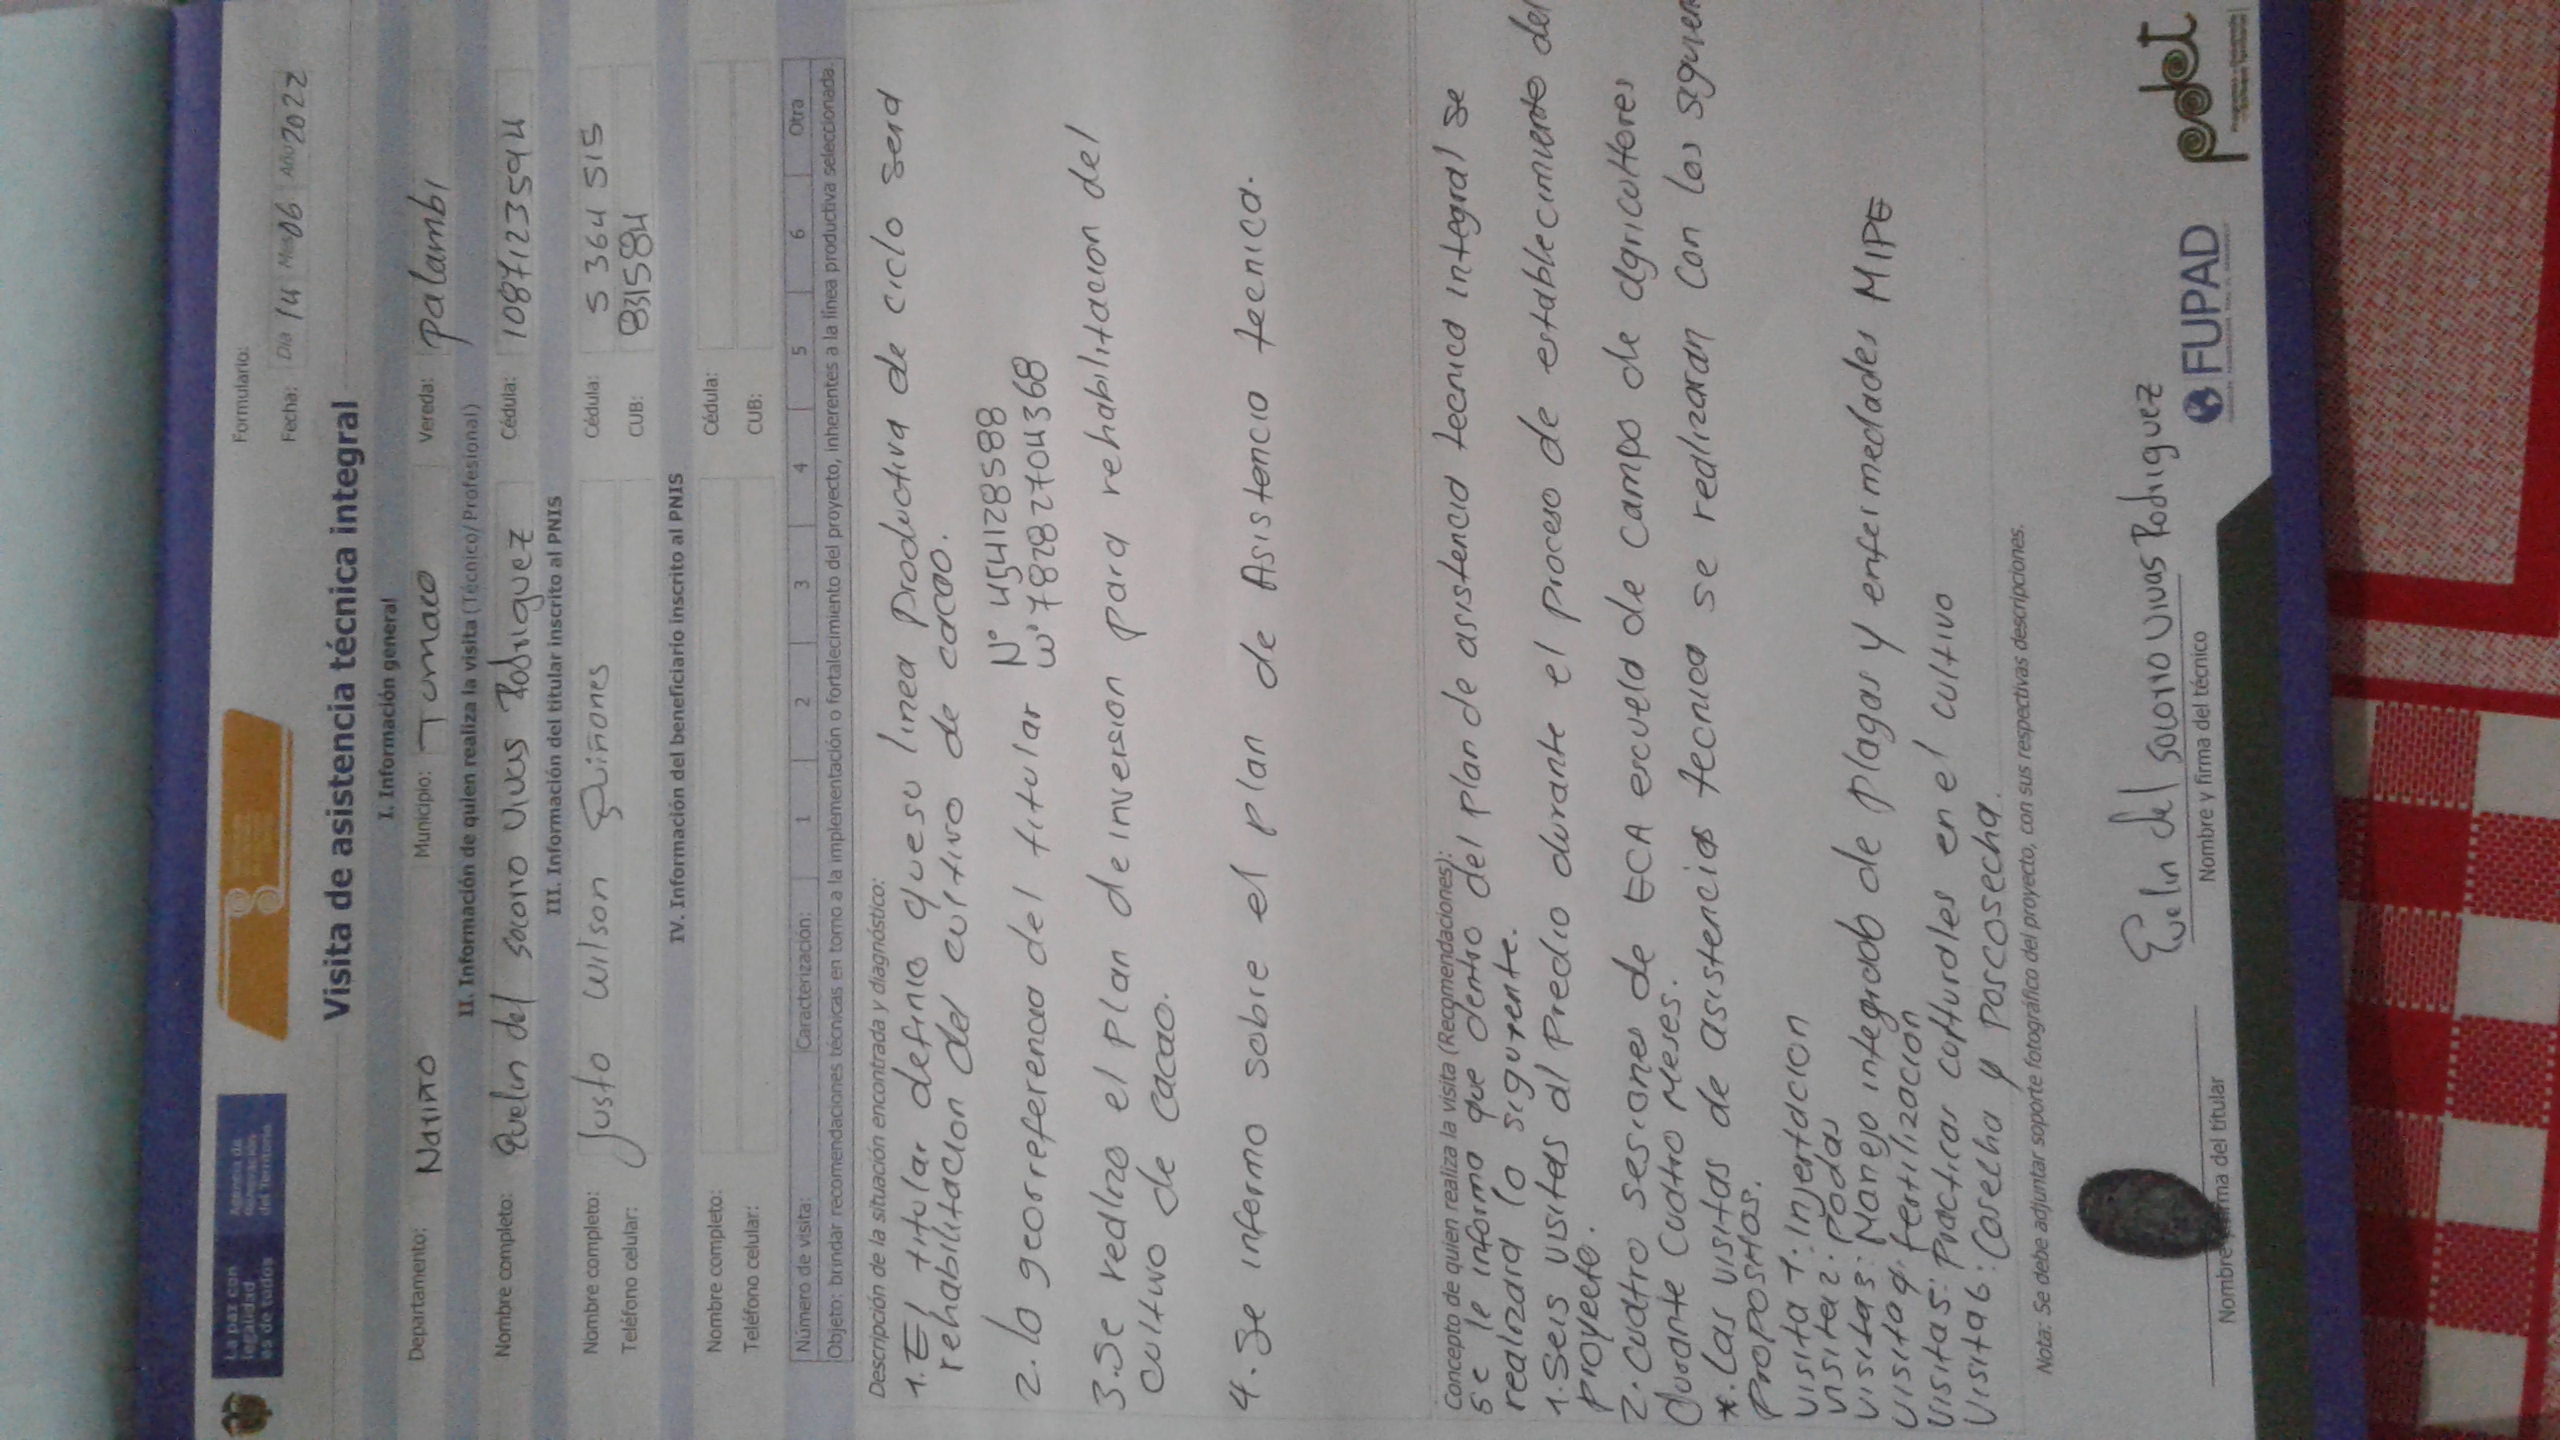 La paz con
legalidad
es de todos
Agencia de
Renovación
del Territorio
Formulario:
Fecha: Día 14 Mes 06 Año 2022
Visita de asistencia técnica integral
I. Información general
Departamento: Nariño Municipio: Tumaco Vereda: palambi
II. Información de quien realiza la visita (Técnico/Profesional)
Nombre completo: Evelin del socorro vivas Rodriguez Cédula: 1087123594
III. Información del titular inscrito al PNIS
Nombre completo: Justo wilson Quiñones Cédula: 5 364 515
Teléfono celular: CUB: 831584
IV. Información del beneficiario inscrito al PNIS
Nombre completo: Cédula:
Teléfono celular: CUB:
Número de visita: Caracterización: 1 2 3 4 5 6 Otra
Objeto: brindar recomendaciones técnicas en torno a la implementación o fortalecimiento del proyecto, inherentes a la línea productiva seleccionada.
Descripción de la situación encontrada y diagnóstico:
1. El titular definio que su linea Productiva de ciclo sera
rehabilitacion del cultivo de cacao.
2. la georreferencia del titular N° 454128588
W° 78282704368
3. Se realizo el plan de inversion para rehabilitacion del
cultivo de cacao.
4. Se informo sobre el plan de Asistencia tecnica.
Concepto de quien realiza la visita (Recomendaciones):
Se le informo que dentro del plan de asistencia tecnica integral se
realizara lo siguiente.
1. Seis visitas al Predio durante el proceso de establecimiento del
proyecto.
2. Cuatro sesiones de ECA escuela de campo de agricultores
durante Cuatro meses.
*. Las visitas de asistencias tecnica se realizaran Con los siguien
Propositos.
Visita 1: Injertacion
Visita 2: Podas
Visita 3: Manejo integrado de plagas y enfermedades MIPE
Visita 4: fertilizacion
Visita 5: Practicas culturales en el cultivo
Visita 6: Cosecha y poscosecha.
Nota: Se debe adjuntar soporte fotográfico del proyecto, con sus respectivas descripciones.
Evelin del socorro vivas Rodriguez
Nombre y firma del titular Nombre y firma del técnico
FUPAD
pdet